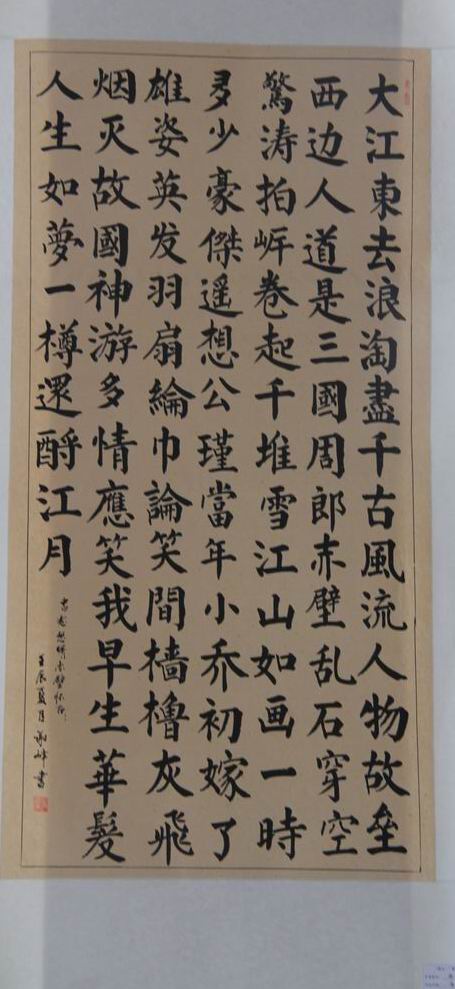 大江東去浪淘盡千古風流人物故壘
西边人道是三國周郎赤壁乱石穿空
驚涛拍岸卷起千堆雪江山如画一時
多少豪傑遥想公瑾當年小乔初嫁了
雄姿英发羽扇綸巾論笑間檣櫓灰飛
烟灭故國神游多情應笑我早生華髮
人生如夢一樽還酹江月
赤壁怀古
壬辰夏月 峰書